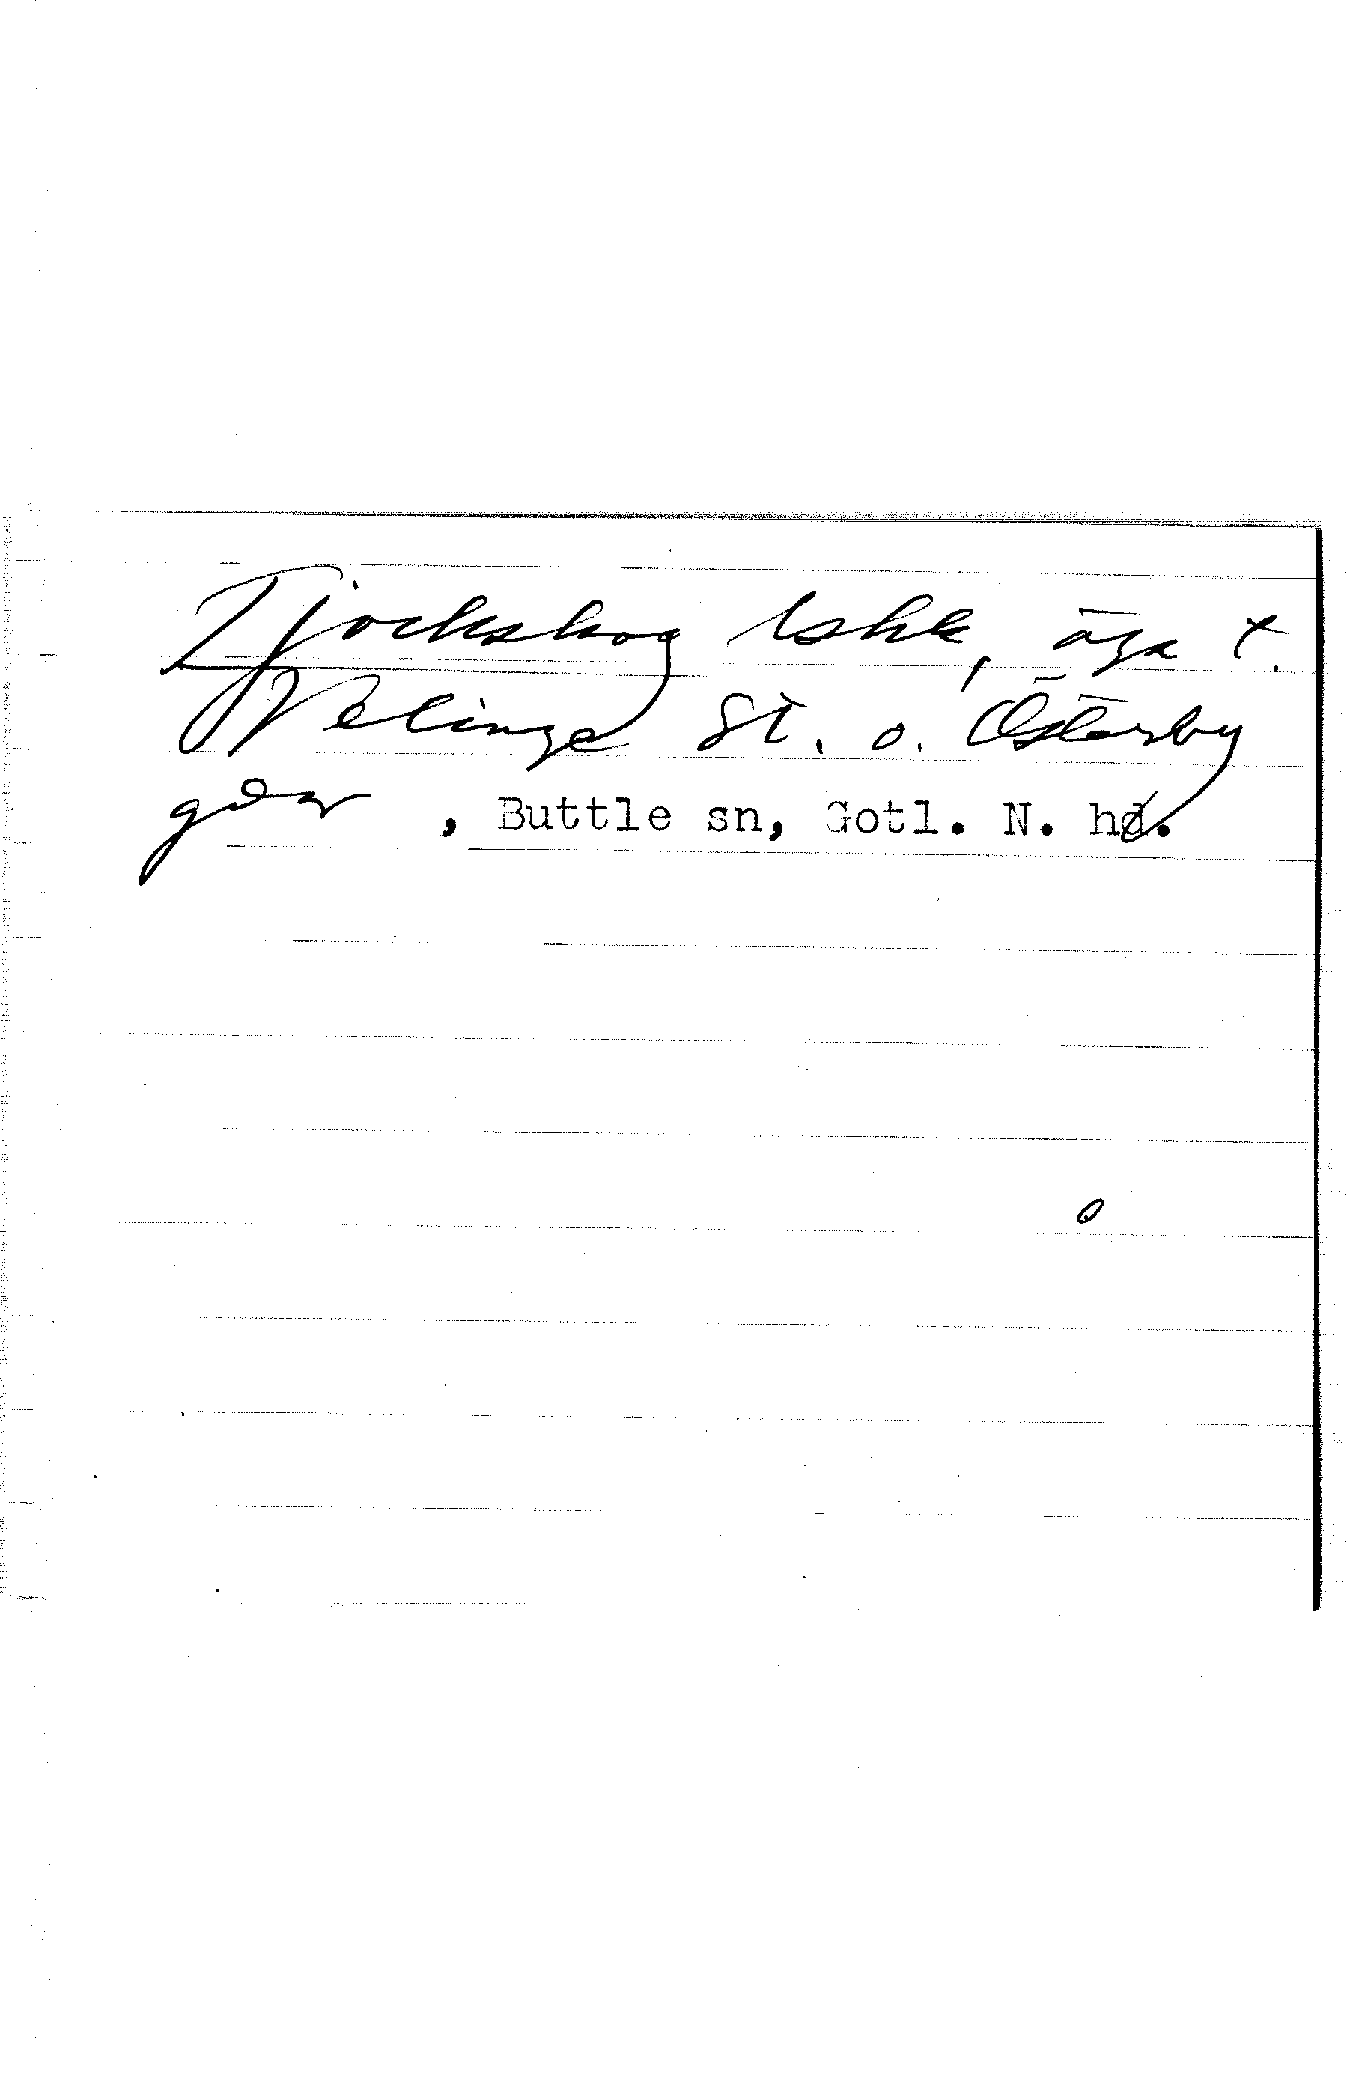 Tjockskog tskk, äga t.
Velinge St. o. Österby
gdar, Buttle sn, Gotl. N. hd.